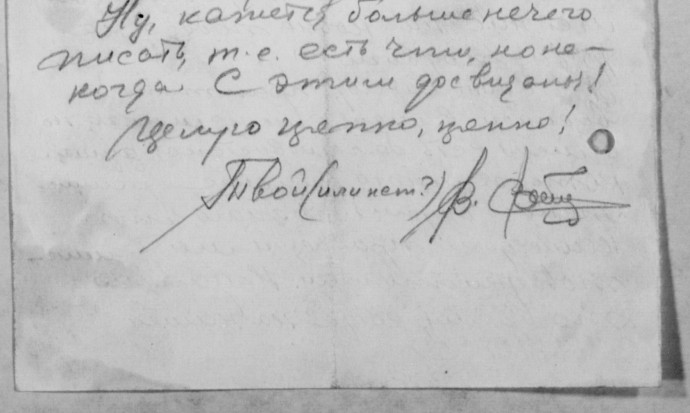 Ну, кажется, больше нечего
писать, т.е. есть что, но не-
когда. С этим досвиданье!
Целую цепко, цепко!
Твой (или нет?) В.